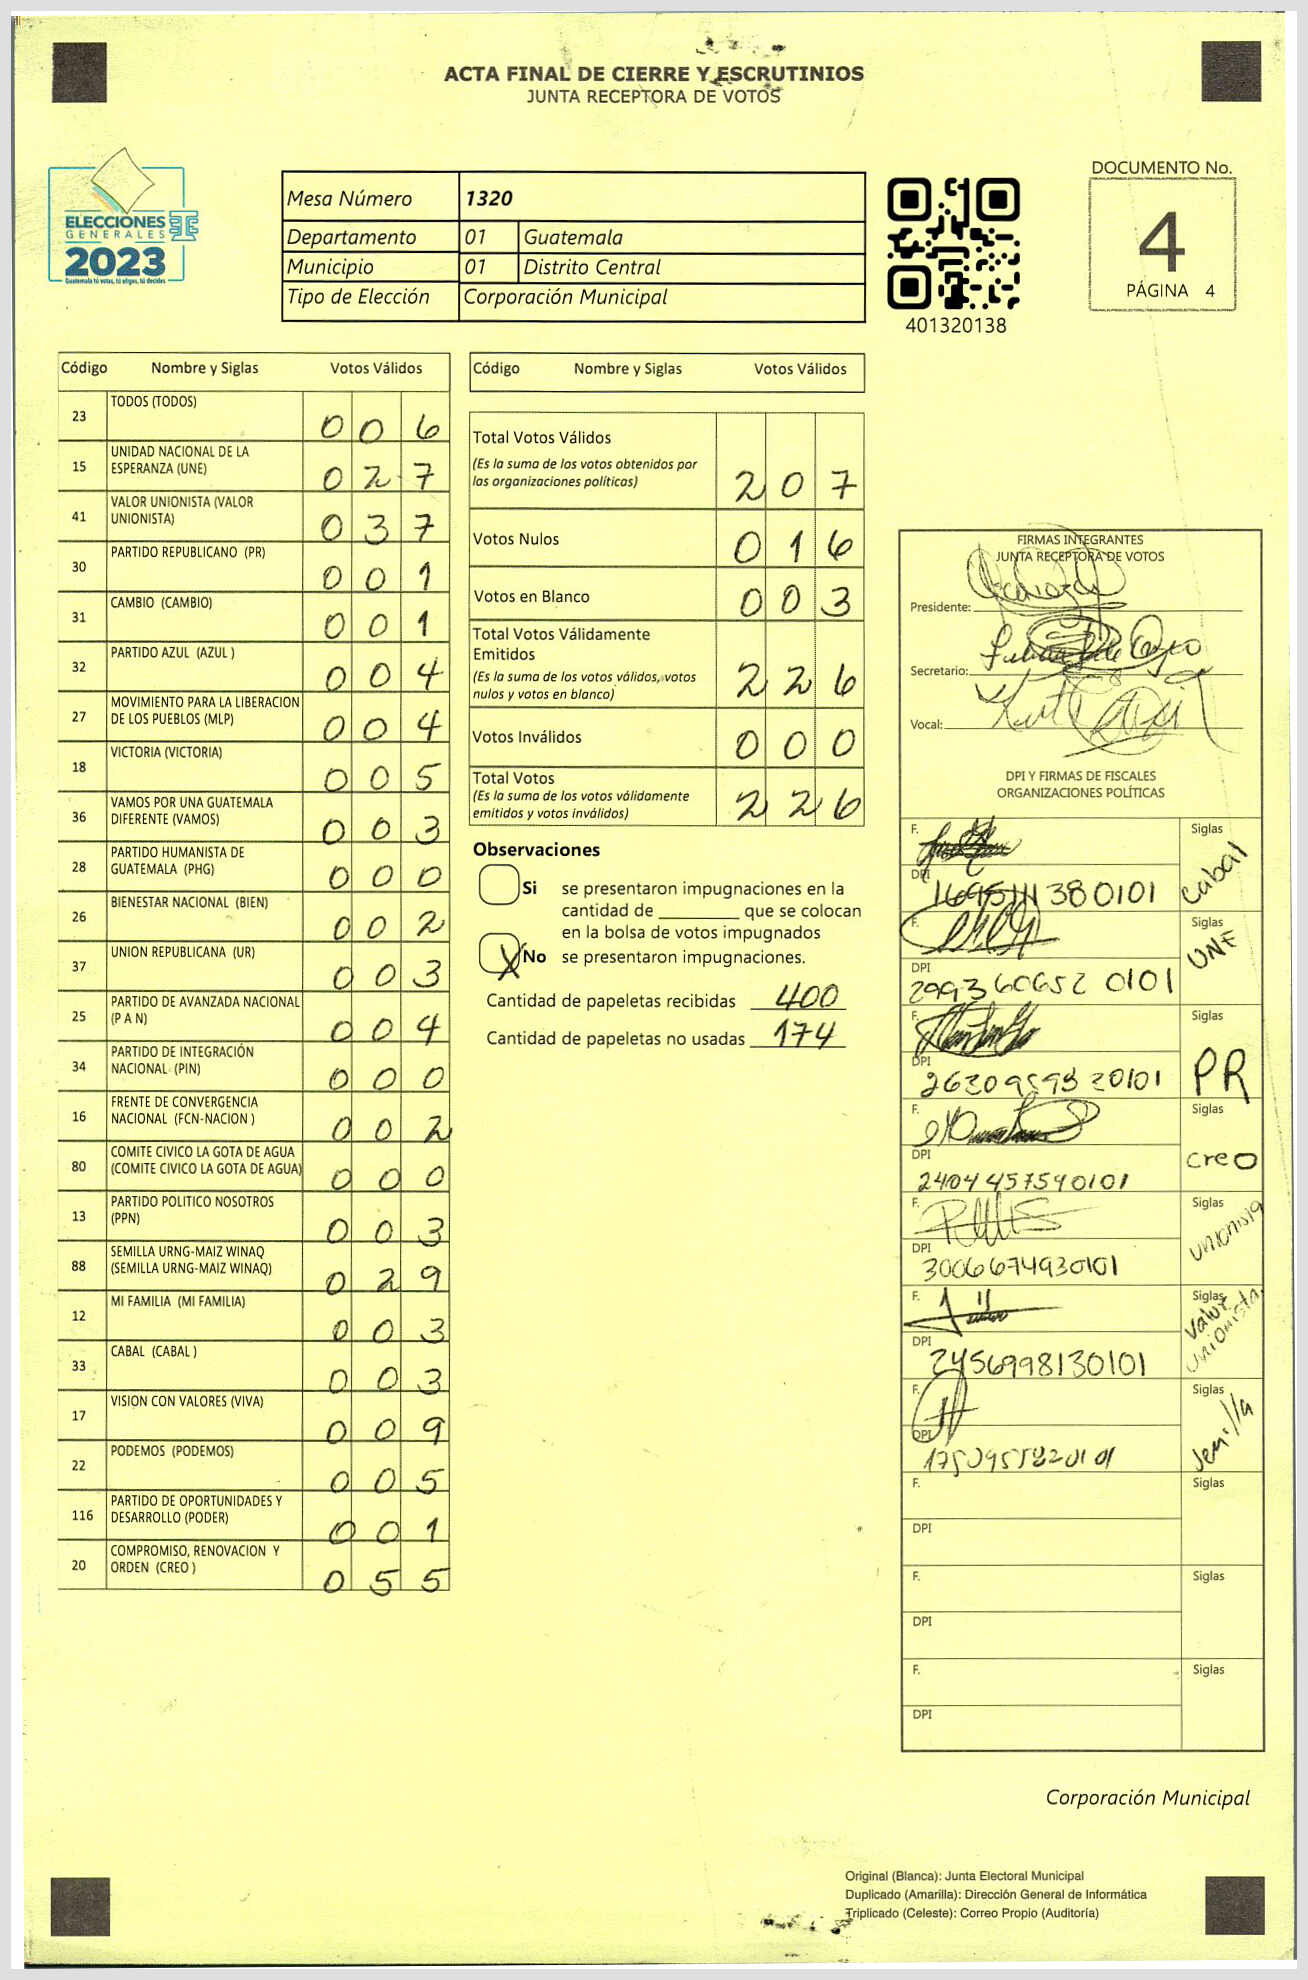 ACTA FINAL DE CIERRE Y ESCRUTINIOS
JUNTA RECEPTORA DE VOTOS
ELECCIONES
GENERALES
2023
Guatemala tú votas, tú eliges, tú decides
Mesa Número 1320
Departamento 01 Guatemala
Municipio 01 Distrito Central
Tipo de Elección Corporación Municipal
401320138
DOCUMENTO No.
4
PÁGINA 4
Código Nombre y Siglas Votos Válidos
23 TODOS (TODOS) 0 0 6
15 UNIDAD NACIONAL DE LA
ESPERANZA (UNE) 0 2 7
41 VALOR UNIONISTA (VALOR
UNIONISTA) 0 3 7
30 PARTIDO REPUBLICANO (PR) 0 0 1
31 CAMBIO (CAMBIO) 0 0 1
32 PARTIDO AZUL (AZUL ) 0 0 4
27 MOVIMIENTO PARA LA LIBERACION
DE LOS PUEBLOS (MLP) 0 0 4
18 VICTORIA (VICTORIA) 0 0 5
36 VAMOS POR UNA GUATEMALA
DIFERENTE (VAMOS) 0 0 3
28 PARTIDO HUMANISTA DE
GUATEMALA (PHG) 0 0 0
26 BIENESTAR NACIONAL (BIEN) 0 0 2
37 UNION REPUBLICANA (UR) 0 0 3
25 PARTIDO DE AVANZADA NACIONAL
(P A N) 0 0 4
34 PARTIDO DE INTEGRACIÓN
NACIONAL (PIN) 0 0 0
16 FRENTE DE CONVERGENCIA
NACIONAL (FCN-NACION ) 0 0 2
80 COMITE CIVICO LA GOTA DE AGUA
(COMITE CIVICO LA GOTA DE AGUA) 0 0 0
13 PARTIDO POLITICO NOSOTROS
(PPN) 0 0 3
88 SEMILLA URNG-MAIZ WINAQ
(SEMILLA URNG-MAIZ WINAQ) 0 2 9
12 MI FAMILIA (MI FAMILIA) 0 0 3
33 CABAL (CABAL ) 0 0 3
17 VISION CON VALORES (VIVA) 0 0 9
22 PODEMOS (PODEMOS) 0 0 5
116 PARTIDO DE OPORTUNIDADES Y
DESARROLLO (PODER) 0 0 1
20 COMPROMISO, RENOVACION Y
ORDEN (CREO ) 0 5 5
Código Nombre y Siglas Votos Válidos
Total Votos Válidos
(Es la suma de los votos obtenidos por
las organizaciones políticas) 2 0 7
Votos Nulos 0 1 6
Votos en Blanco 0 0 3
Total Votos Válidamente
Emitidos
(Es la suma de los votos válidos, votos
nulos y votos en blanco) 2 2 6
Votos Inválidos 0 0 0
Total Votos
(Es la suma de los votos válidamente
emitidos y votos inválidos) 2 2 6
Observaciones
Si se presentaron impugnaciones en la
cantidad de ________ que se colocan
en la bolsa de votos impugnados
X No se presentaron impugnaciones.
Cantidad de papeletas recibidas 400
Cantidad de papeletas no usadas 174
FIRMAS INTEGRANTES
JUNTA RECEPTORA DE VOTOS
Presidente:
Secretario:
Vocal:
DPI Y FIRMAS DE FISCALES
ORGANIZACIONES POLÍTICAS
F. Siglas
DPI Cabal
F. Siglas
DPI UNE
2993 60652 0101
F. Siglas
DPI PR
F. Siglas
DPI creo
2404 45754 0101
F. Siglas
DPI unionista
3006674930101
F. Siglas
DPI Valor unionista
2456998130101
F. Siglas
DPI Semilla
F. Siglas
DPI
F. Siglas
DPI
F. Siglas
DPI
Corporación Municipal
Original (Blanca): Junta Electoral Municipal
Duplicado (Amarilla): Dirección General de Informática
Triplicado (Celeste): Correo Propio (Auditoría)